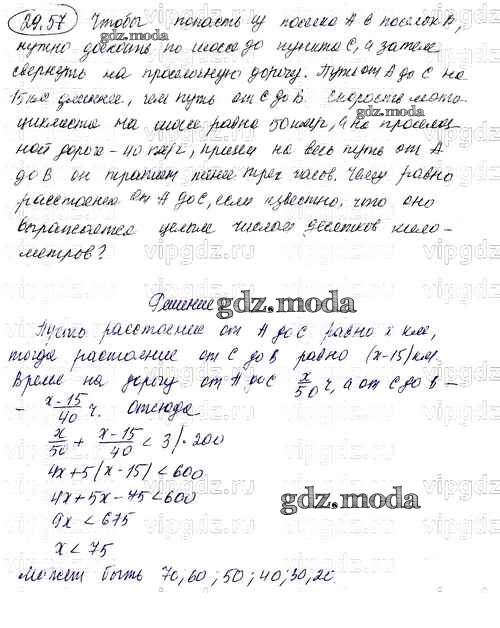 29.57 Чтобы попасть из поселка А в поселок В,
нужно доехать по шоссе до пункта С, а затем
свернуть на проселочную дорогу. Путь от А до С на
15 км длиннее, чем путь от С до В. Скорость мото-
циклиста на шоссе равна 50 км/ч, а на проселоч-
ной дороге - 40 км/ч, причем на весь путь от А
до В он тратит менее трех часов. Чему равно
расстояние от А до С, если известно, что оно
выражается целым числом десятков кило-
метров?
Решение
gdz.moda
Пусть расстояние от А до С равно х км,
тогда расстояние от С до В равно (х-15) км.
Время на дорогу от А до С x/50 ч, а от С до В -
- x-15/40 ч. Отсюда
x/50 + x-15/40 < 3 |·200
4x+5(x-15)<600
4x+5x-75<600
gdz.moda
9x<675
x<75
Может быть 70, 60; 50; 40; 30, 20.